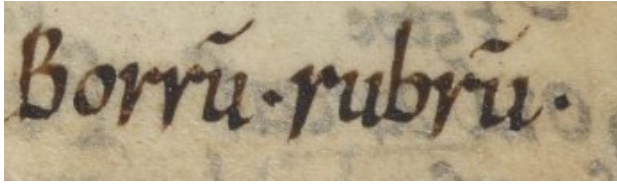 Borrū·rubrū·